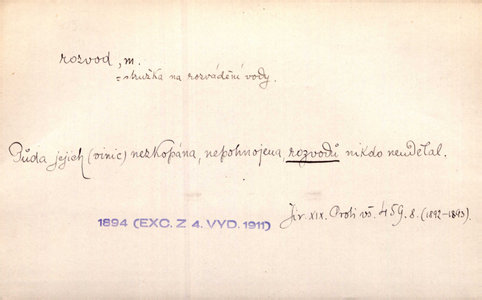 rozvod, m.
= stružka na rozvádění vody.
Půda jejich (vinic) nezkopána, nepohnojena rozvodů nikdo neudělal.
Jir. XIX. Proti vš. 459. 8. (1892–1893).
1894 (EXC. Z 4. VYD. 1911)